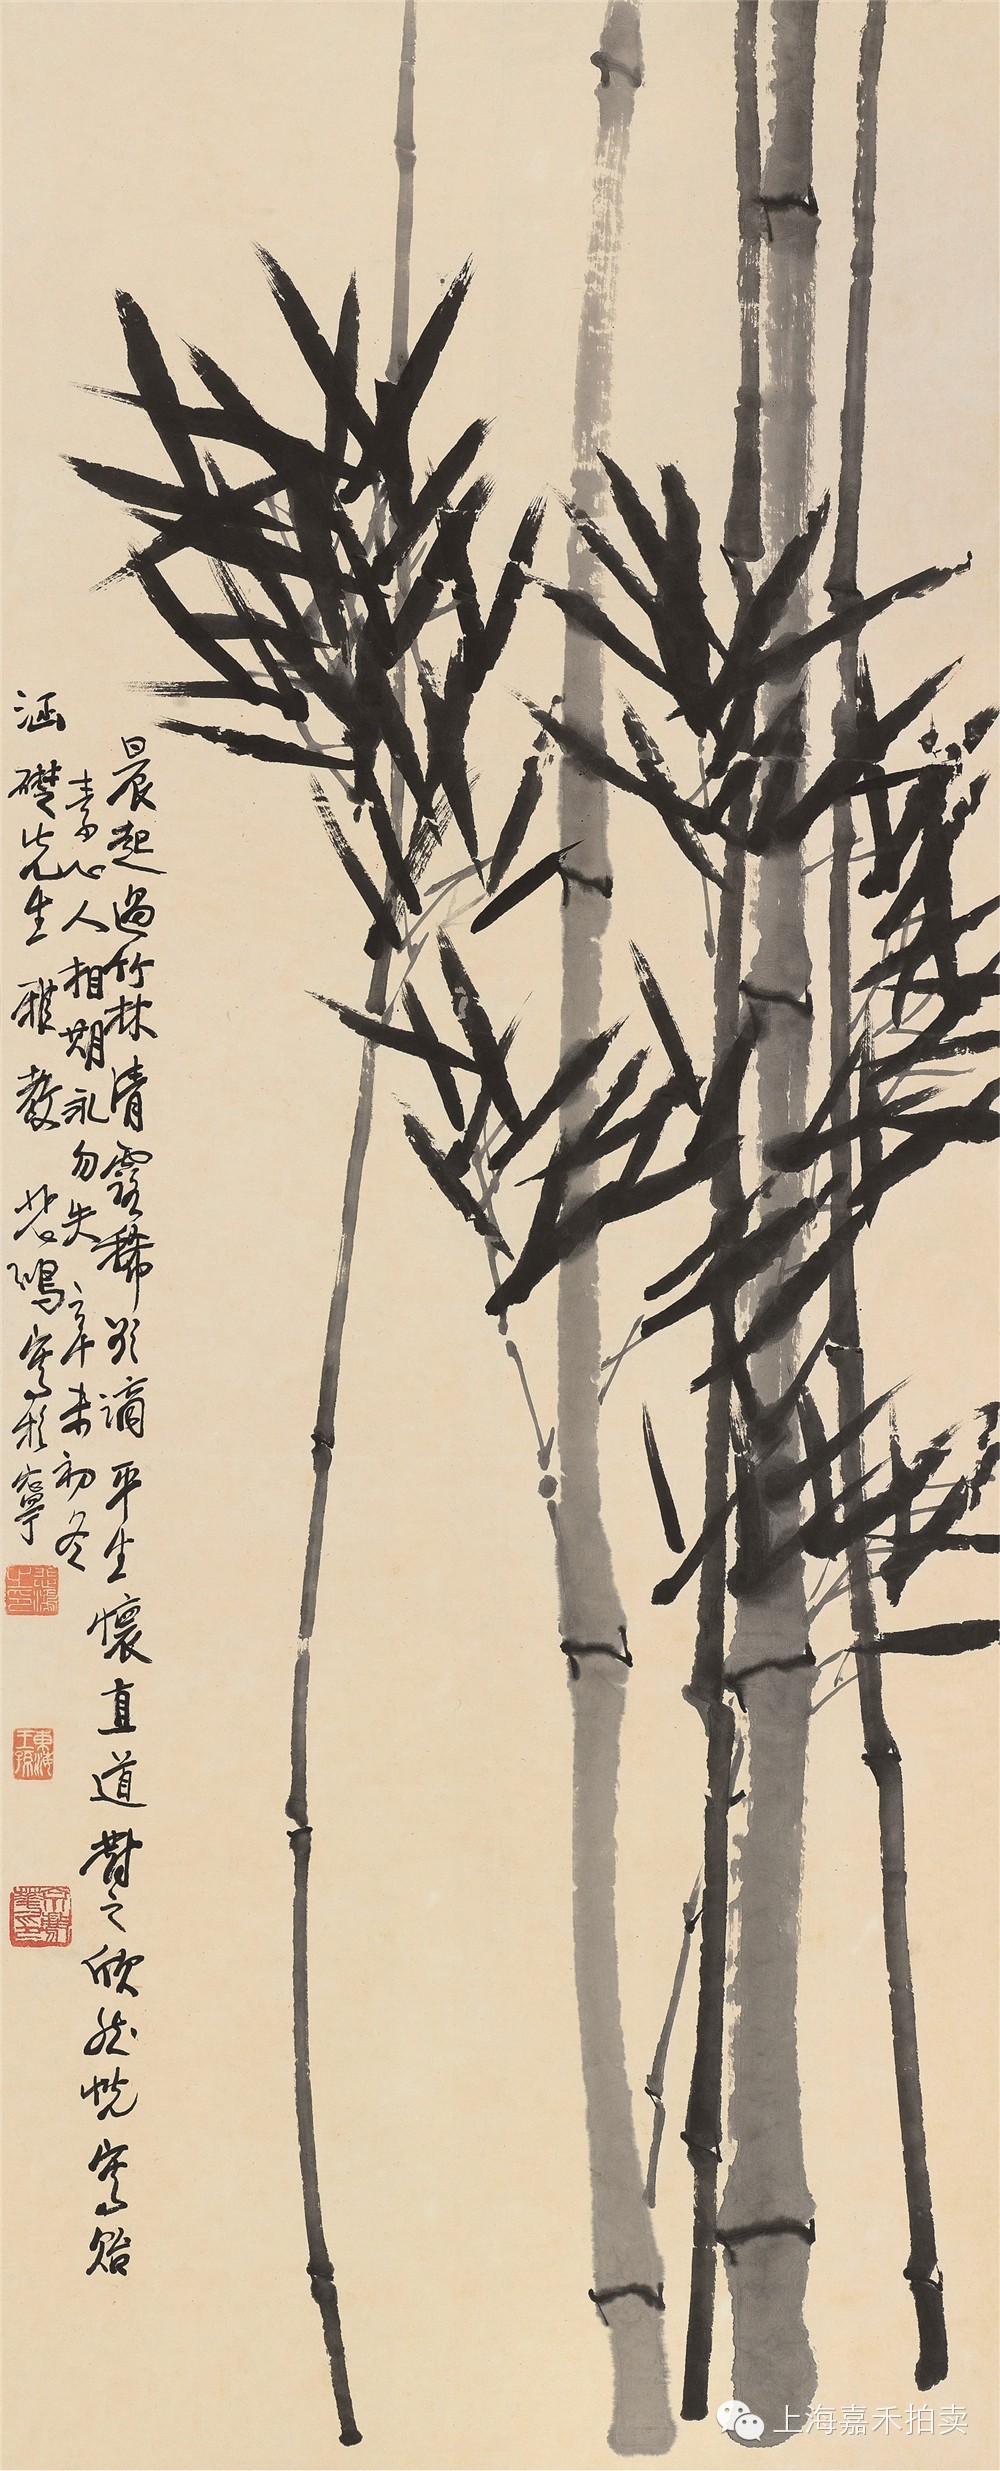 晨起過竹林清露稀欲滴平生懷直道對之欣然恍寫貽
素心人相期永勿失 辛未初冬
涵礎先生雅教 悲鴻寫於寧
悲鴻之印
東海王孫
上海嘉禾拍卖